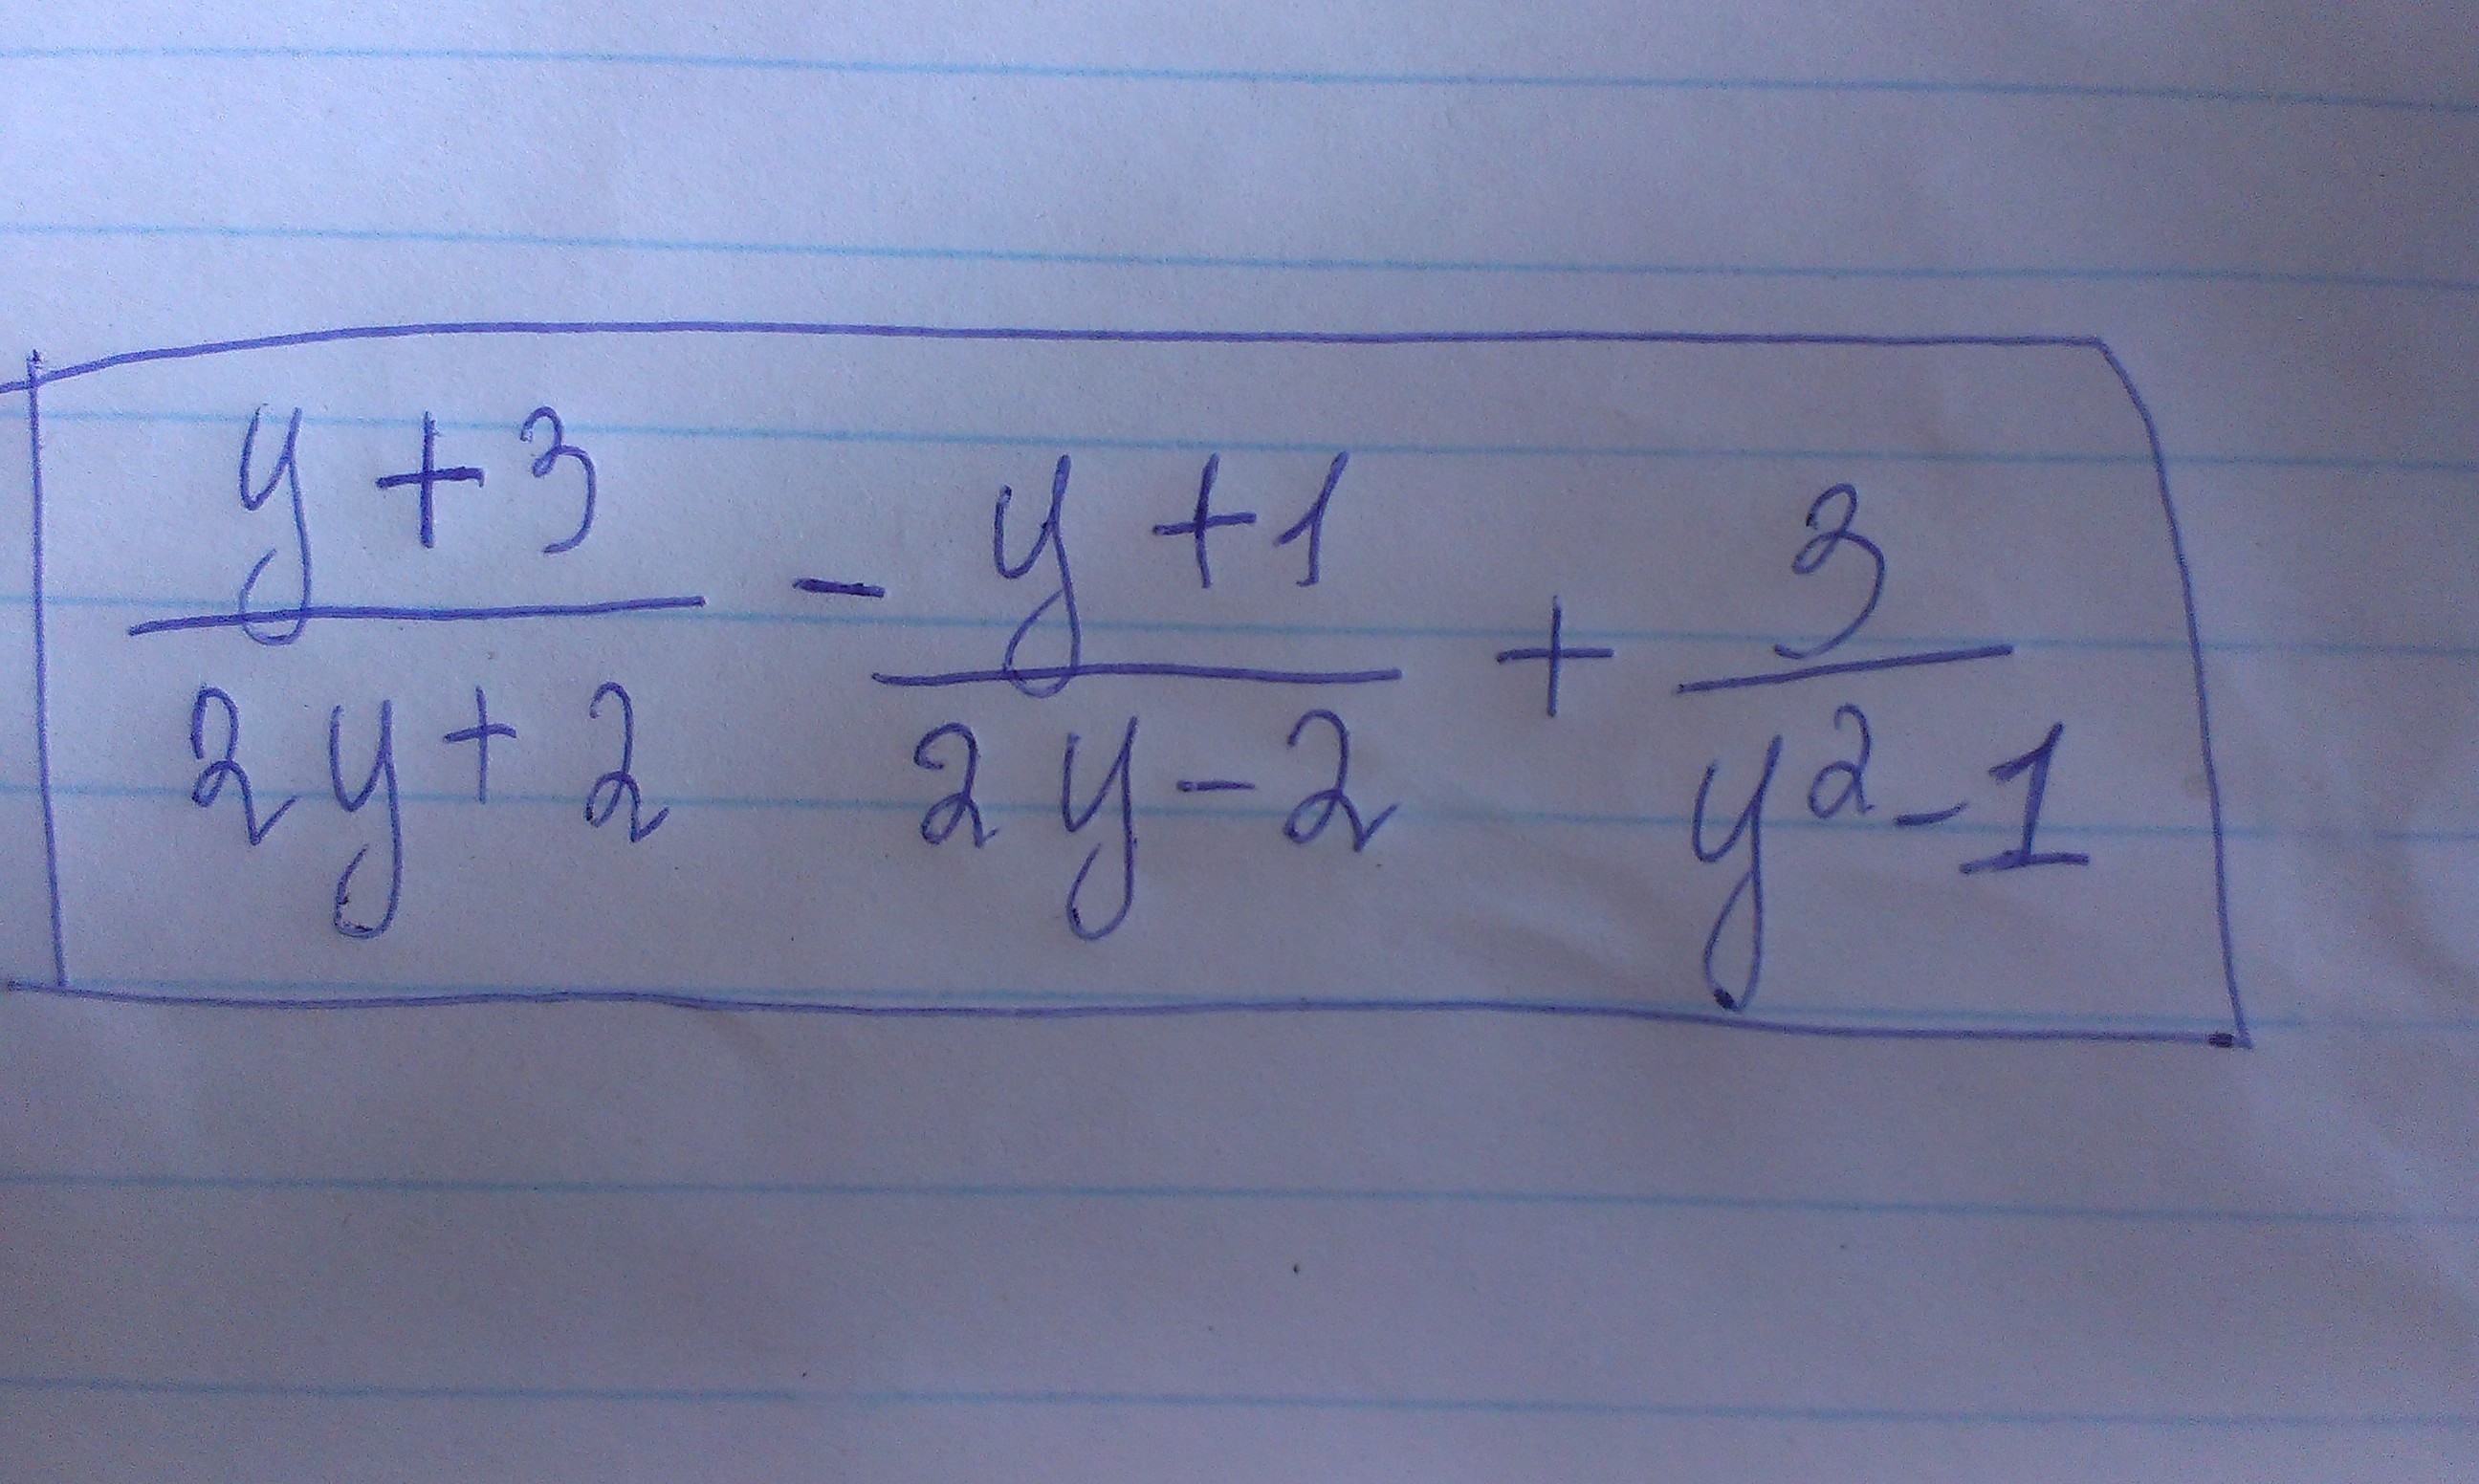 (y+3)/(2y+2) - (y+1)/(2y-2) + 3/(y²-1)